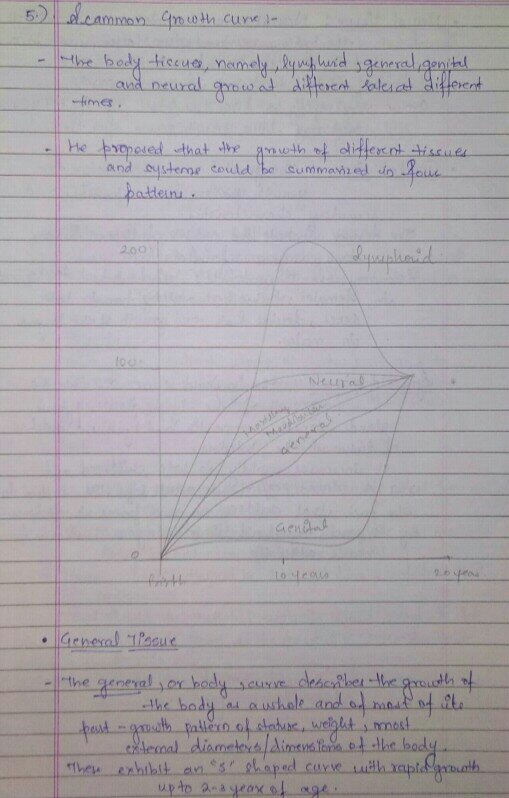 5.) Scammon Growth curve :-
- The body tissues, namely, lymphoid, general, genital
and neural grow at different rates at different
times.
- He proposed that the growth of different tissues
and systems could be summarized in four
patterns.
200
Lymphoid
100
Neural
Maxillary
Mandibular
General
Genital
0
Birth
10 years
20 years
• General Tissue
- The general, or body, curve describes the growth of
the body as a whole and of most of its
part - growth pattern of stature, weight, most
external diameters/dimensions of the body.
They exhibit an "S" shaped curve with rapid growth
up to 2-3 year of age.